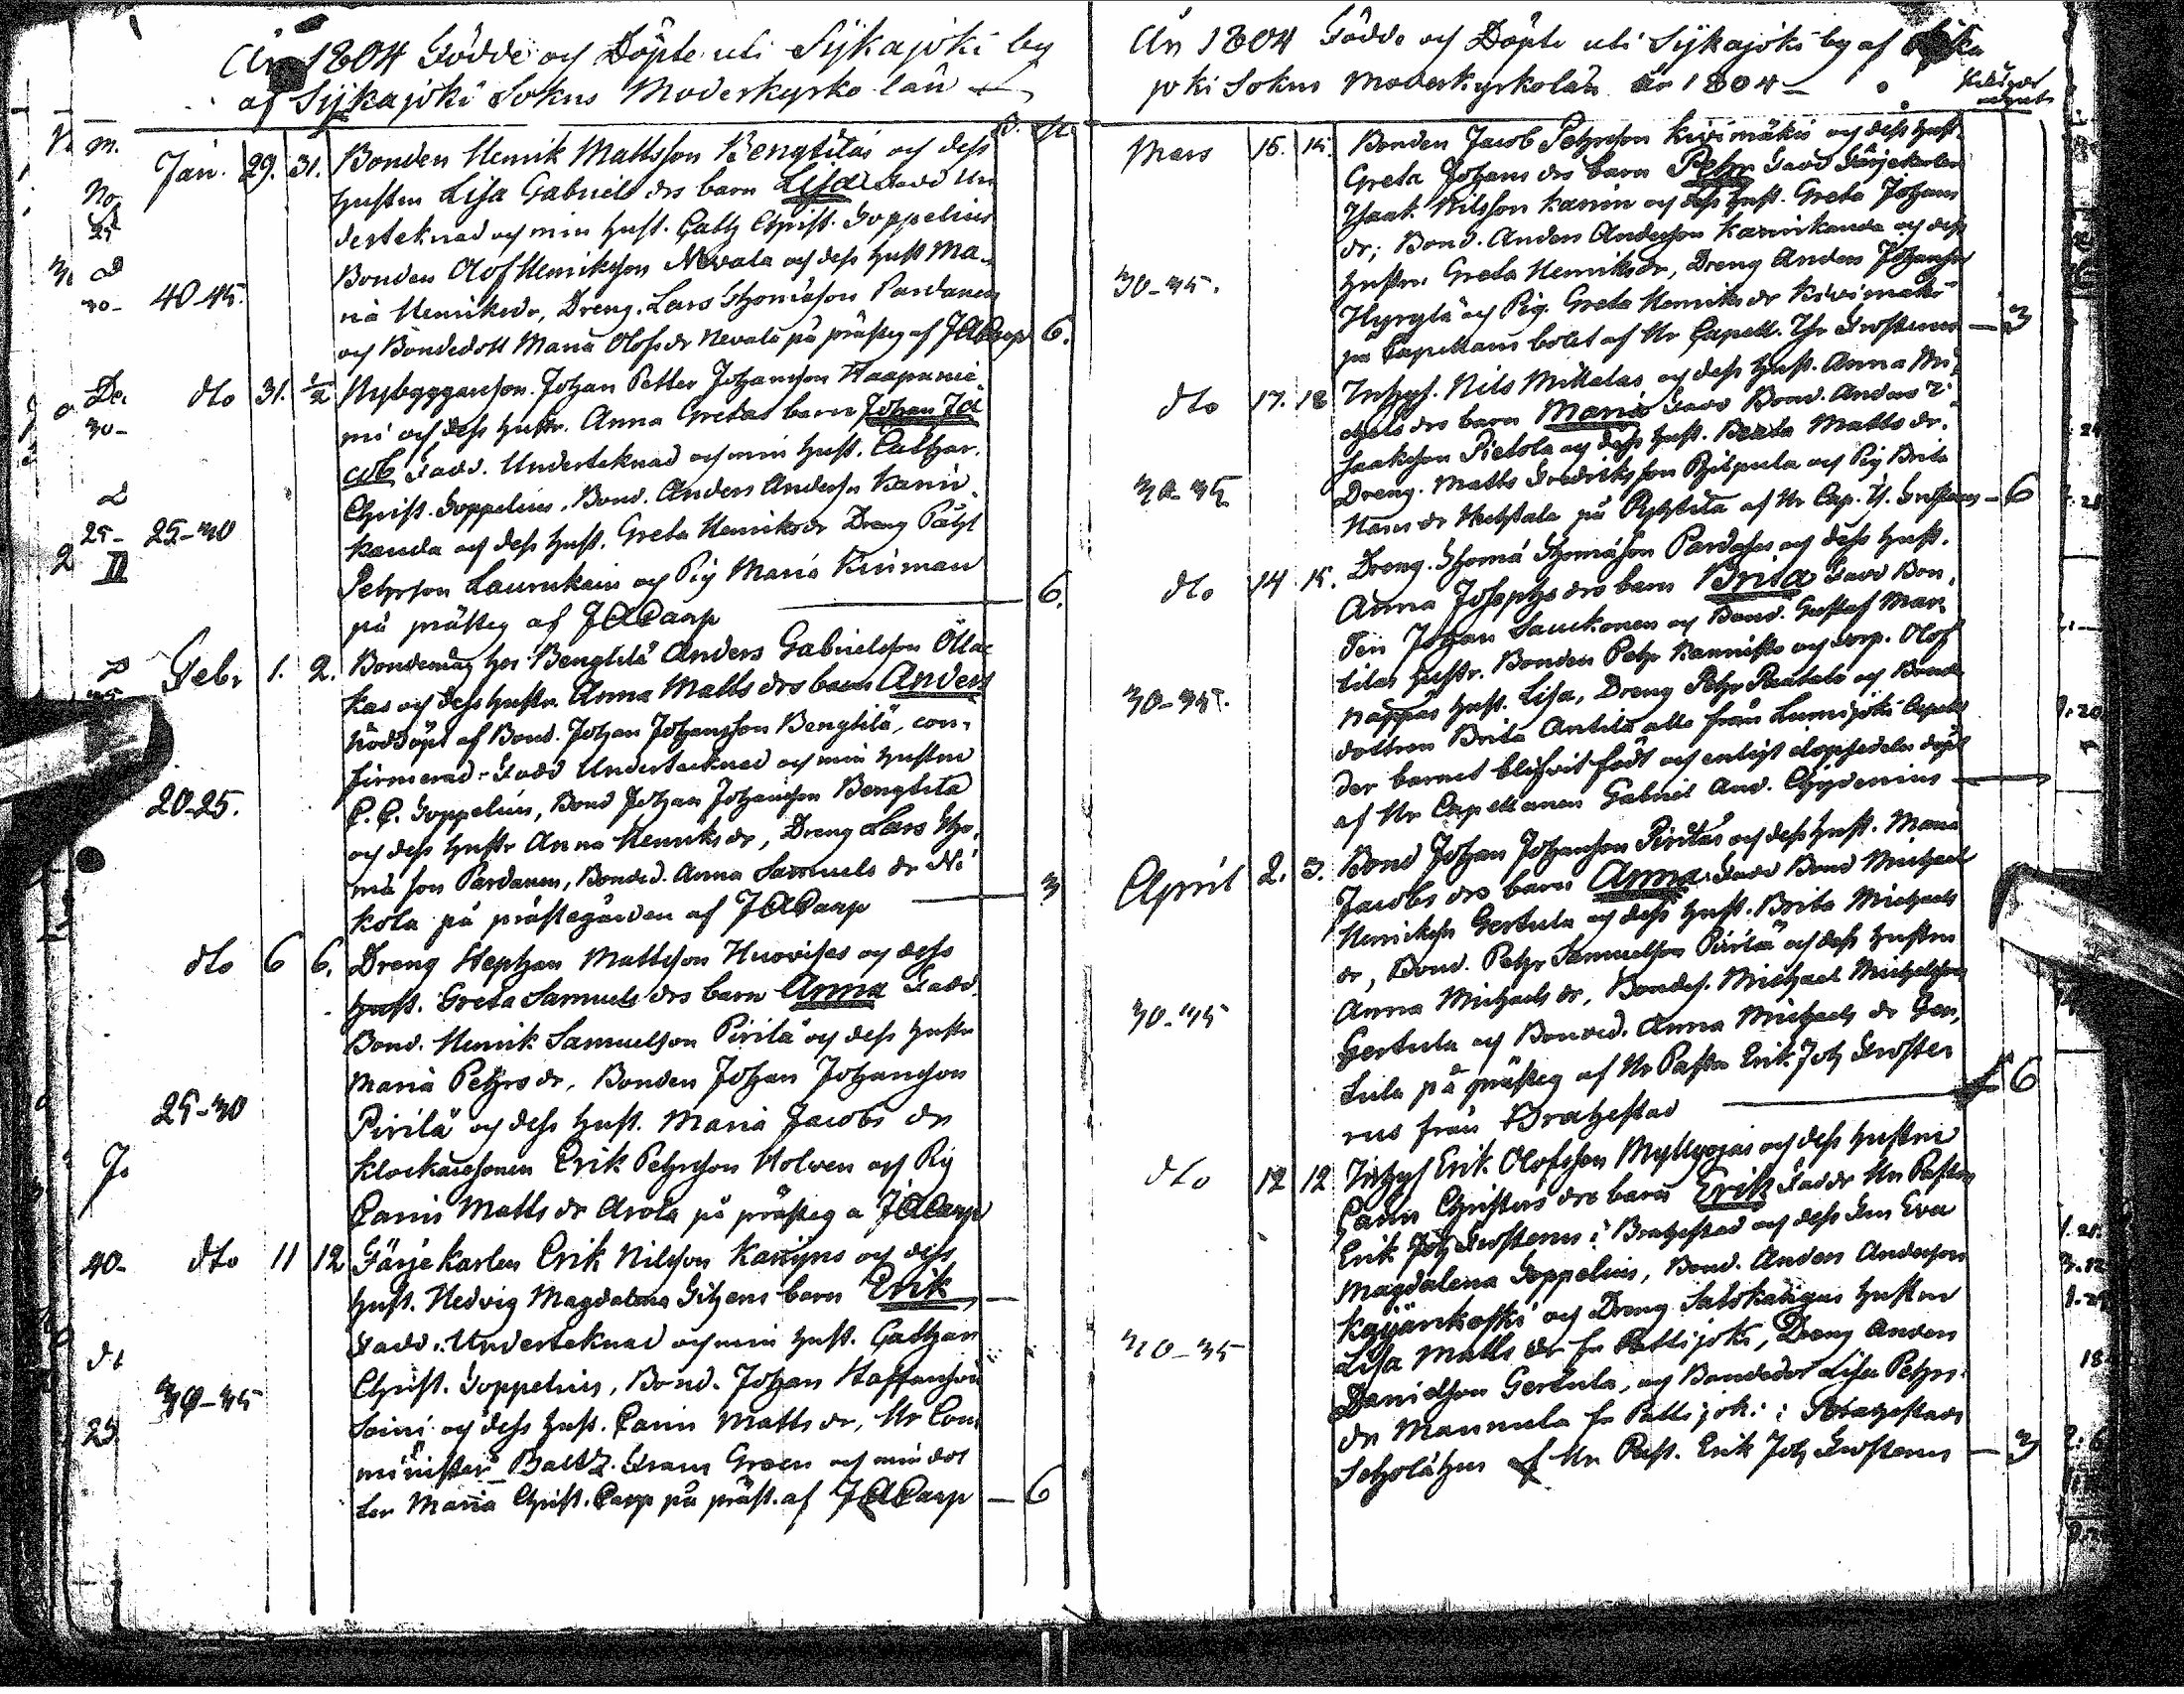 År 1804 Födde och Döpte uti Sijkajoki by
af Sijkajoki Sokns Moderkyrko län
Jan. 29. 31. Bonden Henrik Mattsson Bengtiläs och dess
hustru Lisa Gabriels drs barn Lisa Fadd Un
derteknad och min hust. Cath Christ. Foppelius
Bonden Olof Henriksson Nevala och dess hust Ma-
40-45. ria Henriksdr, Dreng. Lars Thomasson Pardanen
och Bondedott Maria Olofsdr Nevala på prästeg af JACarp 6.
dto 31. 1/2 Nybyggareson Johan Petter Johansson Haapanie-
mi och dess hustr. Anna Gretas barn Johan Ja
cob Fadd. Underteknad och min hust. Cathar.
Christ. Foppelius, Bond. Anders Anderss Karin
25-30 kanda och dess hust. Greta Henriksdr Dreng Påhl
Petersson Laurukain och Pig Maria Kinman
på prästeg af JACarp 6.
Febr 1. 2. Bondemåg hos Bengtilä Anders Gabrielsson Ölla
kas och dess hustr. Anna Matts drs barn Anders
nöddöpt af Bond. Johan Johansson Bengtilä, con-
firmerad. Fadd Undertecknad och min hustru
20-25. C. C. Foppelius, Bond Johan Johansson Bengtilä
och dess hustr Anna Henriks dr, Dreng Lars Tho-
ma son Pardanen, Bonded. Anna Samuels dr Ni
kola på prästegården af JACarp 3
dto 6 6. Dreng Stephan Mattsson Huovises och dess
hust. Greta Samuels drs barn Anna Fadd.
Bond. Henrik Samuelsson Pirilä och dess hustr
Maria Pehrsdr, Bonden Johan Johansson
25-30 Pirilä och dess hust. Maria Jacobs dr
Klockaresonen Erik Pehrsson Holwen och Pig
Carin Matts dr Arola på prästeg a JACarp
dto 11 12 Färjekarlen Erik Nilsson Karijns och dess
hust. Hedvig Magdalena Gihens barn Erik
Fadd. Underteknad och min hust. Cathar
Christ. Foppelius, Bond. Johan Staffansson
30-35 Soini och dess hust. Carin Matts dr, Hr Com
minister Baltz. Frans Green och min dot
ter Maria Christ. Carp på präst. af JACarp 6
År 1804 Födde och Döpte uti Sijkajoki by af Sijka
joki Sokns Moderkyrkolän år 1804
Mars 15. 15. Bonden Jacob Pehrsson Kivimäkis och dess hust.
Greta Johans drs barn Pehr Fadd Färjekarlen
Isaak Nilsson Karin och dess hust. Greta Johans
dr; Bond. Anders Andersson Karinkanda och dess
30-35. hustru Greta Henriksdr, Dreng Anders Johansson
Hyrylä och Pig. Greta Henriksdr Kivimäki
på Capellans bolet af Hr Capell. Joh Frosterus 3
dto 17. 18 Inhys. Nils Mikkelas och dess hust. Anna Mi
chels drs barn Maria Fadd Bond. Anders I
saaksson Pietola och dess hust. Beata Matts dr.
30-35 Dreng. Matts Fredriksson Ryhpula och Pig Brita
Hans dr Huhtala på Ryhtilä af Hr Cap. J. Frosterus 6
dto 14 15. Dreng. Thoma Thomasson Pardases och dess hust.
Anna Josephs drs barn Brita Fadd Bon-
den Johan Saukonen och Bond. Gustaf Mar-
tilas hustr. Bonden Pehr Kannisto och Corp. Olof
30-35. Nappas hust. Lisa, Dreng Pehr Rautala och Bonde
dottren Brita Antila alla från Lumijoki Capell
der barnet blifvit födt och enligt dopsedeln döpt
af Hr Capellanen Gabriel And. Chydenius
April 2. 3. Bond Johan Johansson Pirilas och dess hust. Maria
Jacobs drs barn Anna Fadd Bond Michael
Henriksn Gertula och dess hust. Brita Michaels
dr, Bond. Pehr Samuelsson Pirilä och dess hustru
30-35 Anna Michaels dr, Bondes. Michael Michelsson
Gertula och Bonded. Anna Michaels dr Ger-
tula på prästeg af Hr Pastor Erik Joh Froste- 6
rus från Brahestad
dto 12 12 Inhys Erik Olofsson Myllyojas och dess hustru
Carin Christers drs barn Erik Fadde Hr Pastor
Erik Joh Frosterus i Brahestad och dess Fru Eva
Magdalena Foppelius, Bond. Anders Andersson
Kajänkoski och Dreng Salokangas hustru
30-35 Lisa Matts dr fr Pattijoki, Dreng Anders
Danielsson Gertula, och Bondedor Lisa Pehrs-
dr Mannila fr Pattijoki i Brahestads
Scholähus af Hr Past. Erik Joh Frosterus 3